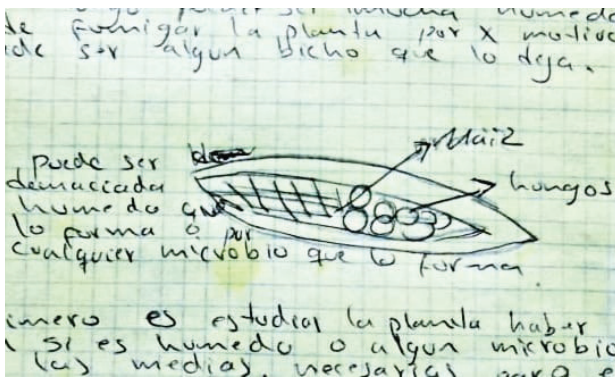 de fumigar la planta por x motivo
de ser algun bicho que lo deja.
Maiz
hongos
puede ser
demaciada
humedo que
lo forma o por
cualquier microbio que lo forma.
imero es estudiar la planta haber
si es humedo o algun microbio
las medias necesarias para e